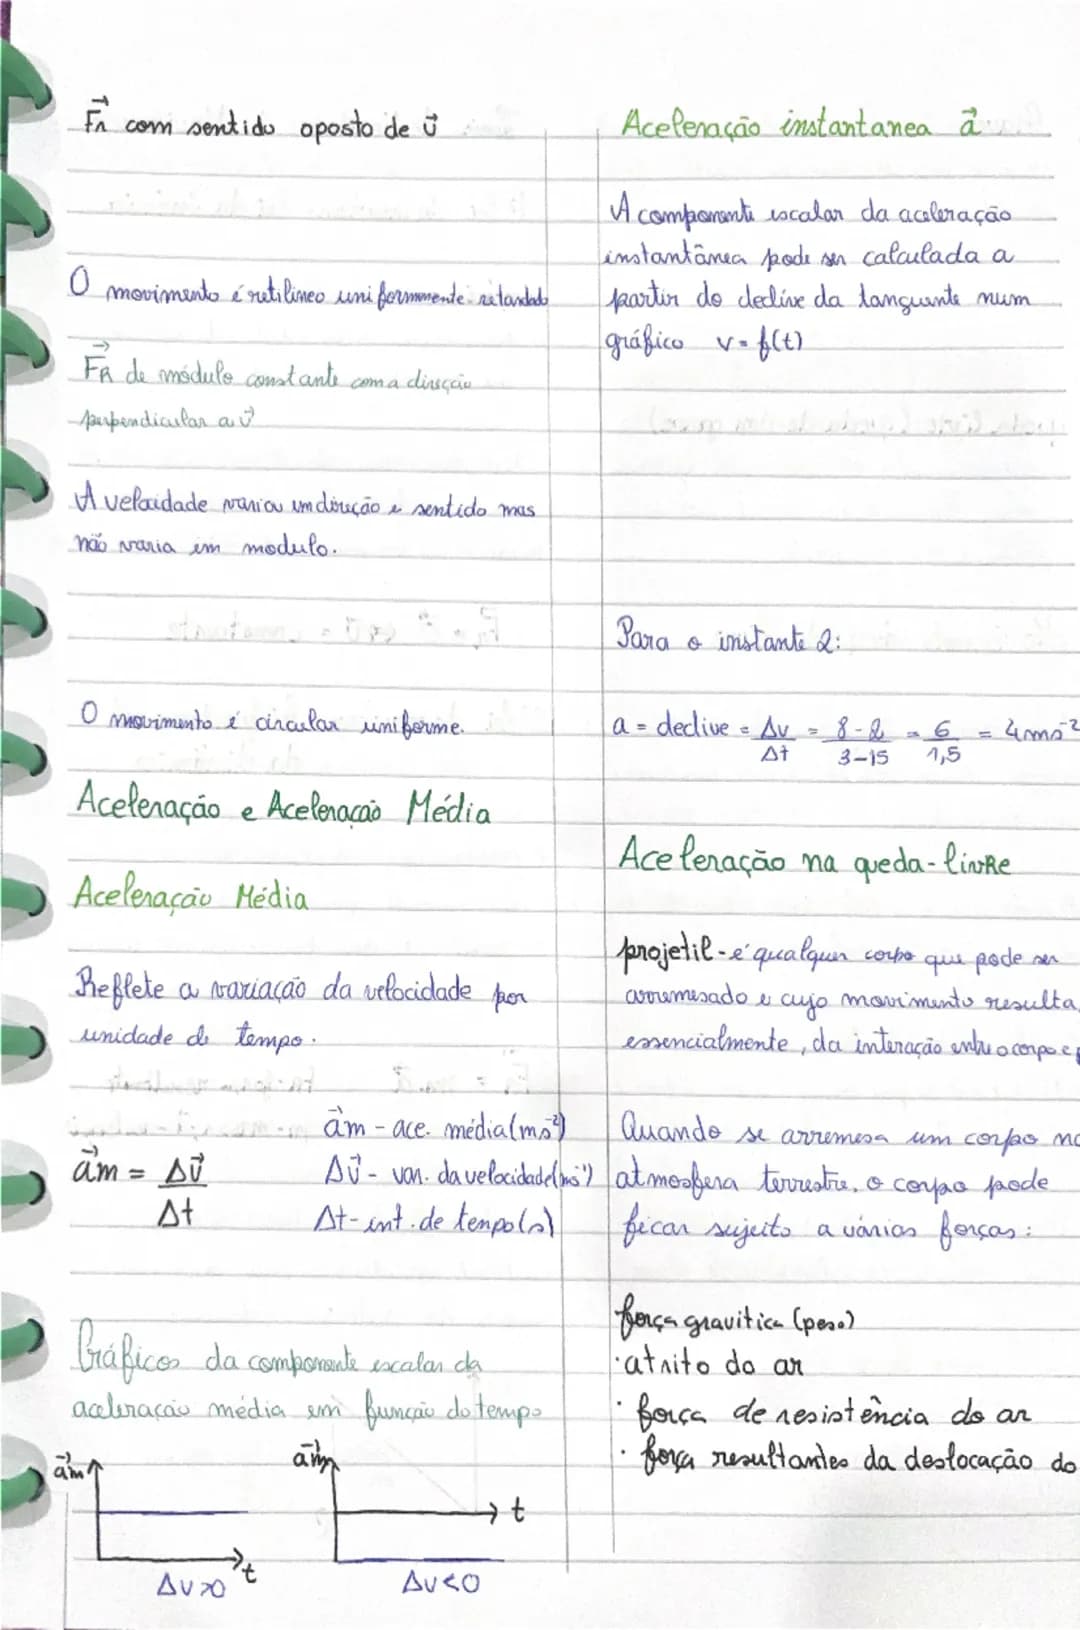 F⃗R com sentido oposto de v⃗
O movimento é retilineo uniformmente retardado
F⃗R de módulo constante com a direção
perpendicular a v⃗
A velocidade variou em direção e sentido mas
não varia em modulo.
O movimento é circular uniforme.
Aceleração e Aceleração Média
Aceleração Média
Reflete a variação da velocidade por
unidade de tempo.
a⃗m = Δv⃗/Δt
a⃗m - ace. média (ms⁻²)
Δv⃗ - var. da velocidade (ms⁻¹)
Δt - int. de tempo (s)
Gráficos da componente escalar da
aceleração média em função do tempo
a⃗m
t
Δv>0
a⃗m
t
Δv<0
Aceleração instantanea a⃗
A componente escalar da aceleração
instantânea pode ser calculada a
partir do declive da tanguente num
gráfico v = f(t)
Para o instante 2:
a = declive = Δv/Δt = 8-2/3-15 = 6/1,5 = 4ms⁻²
Aceleração na queda-livre
projetil - é qualquer corpo que pode ser
arremesado e cujo movimento resulta,
essencialmente, da interação entre o corpo e
Quando se arremesa um corpo
atmosfera terrestre, o corpo pode
ficar sujeito a várias forças:
força gravitica (peso)
·atrito do ar
· força de resistência do ar
· força resultantes da deslocação do